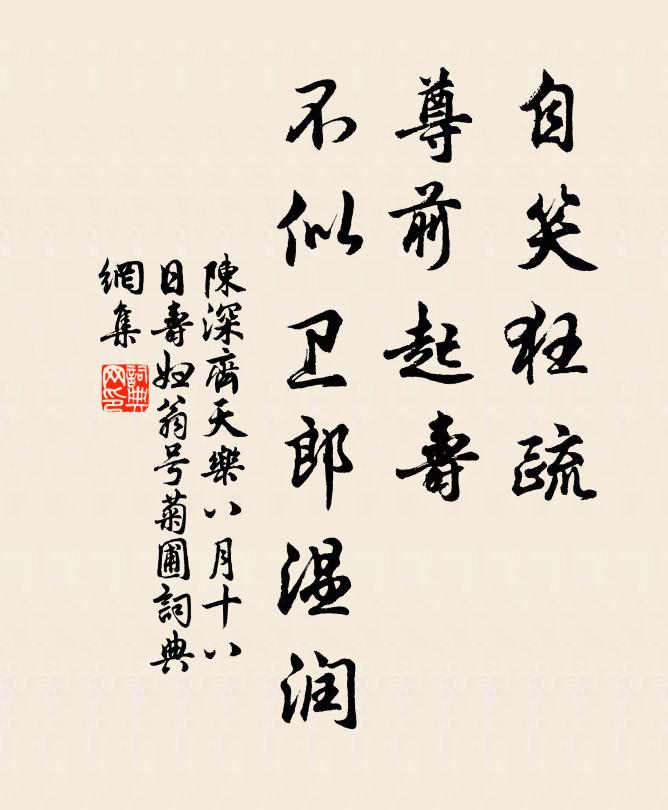 自笑狂疏
尊前起寿
不似卫郎温润
陳深齊天樂八月十八
日壽妇翁号菊圃詞典
網集
詞典
网印